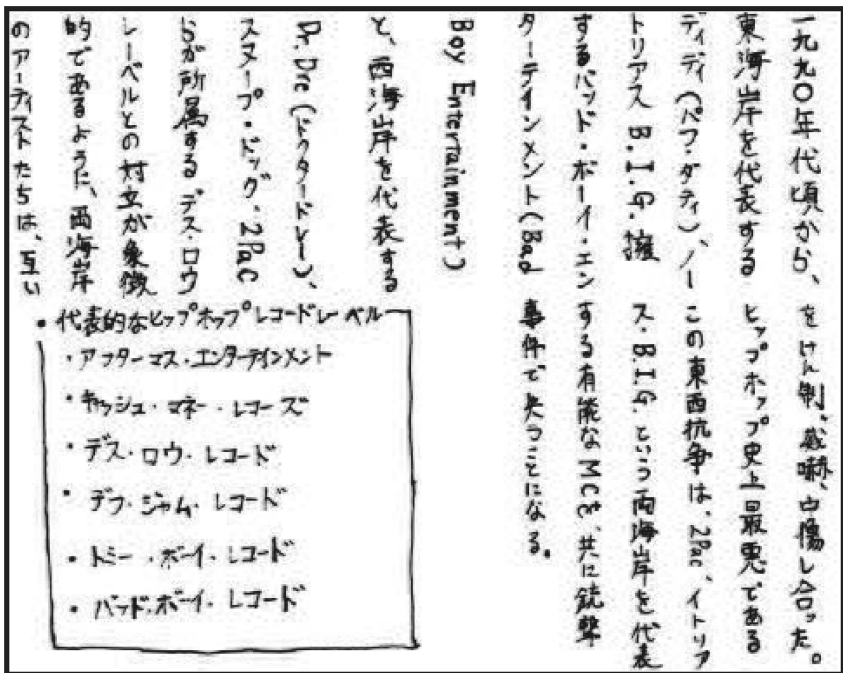 一九九〇年代頃から、
東海岸を代表する
ディディ(パフ・ダディ)、ノー
トリアス B.I.G.擁
するバッド・ボーイ・エン
ターテインメント(Bad
Boy Entertainment)
と、西海岸を代表する
Dr.Dre(ドクタードレー)、
スヌープ・ドッグ、2Pac
らが所属するデス・ロウ
レーベルとの対立が象徴
的であるように、両海岸
のアーティストたちは、互い
をけん制、威嚇、中傷し合った。
ヒップホップ史上最悪である
この東西抗争は、2Pac、イトリア
ス・B.I.G.という両海岸を代表
する有能なMCを、共に銃撃
事件で失うことになる。
・代表的なヒップホップレコードレーベル
・アフターマス・エンターテインメント
・キャッシュ・マネー・レコーズ
・デス・ロウ・レコード
・デフ・ジャム・レコード
・トミー・ボーイ・レコード
・バッド・ボーイ・レコード